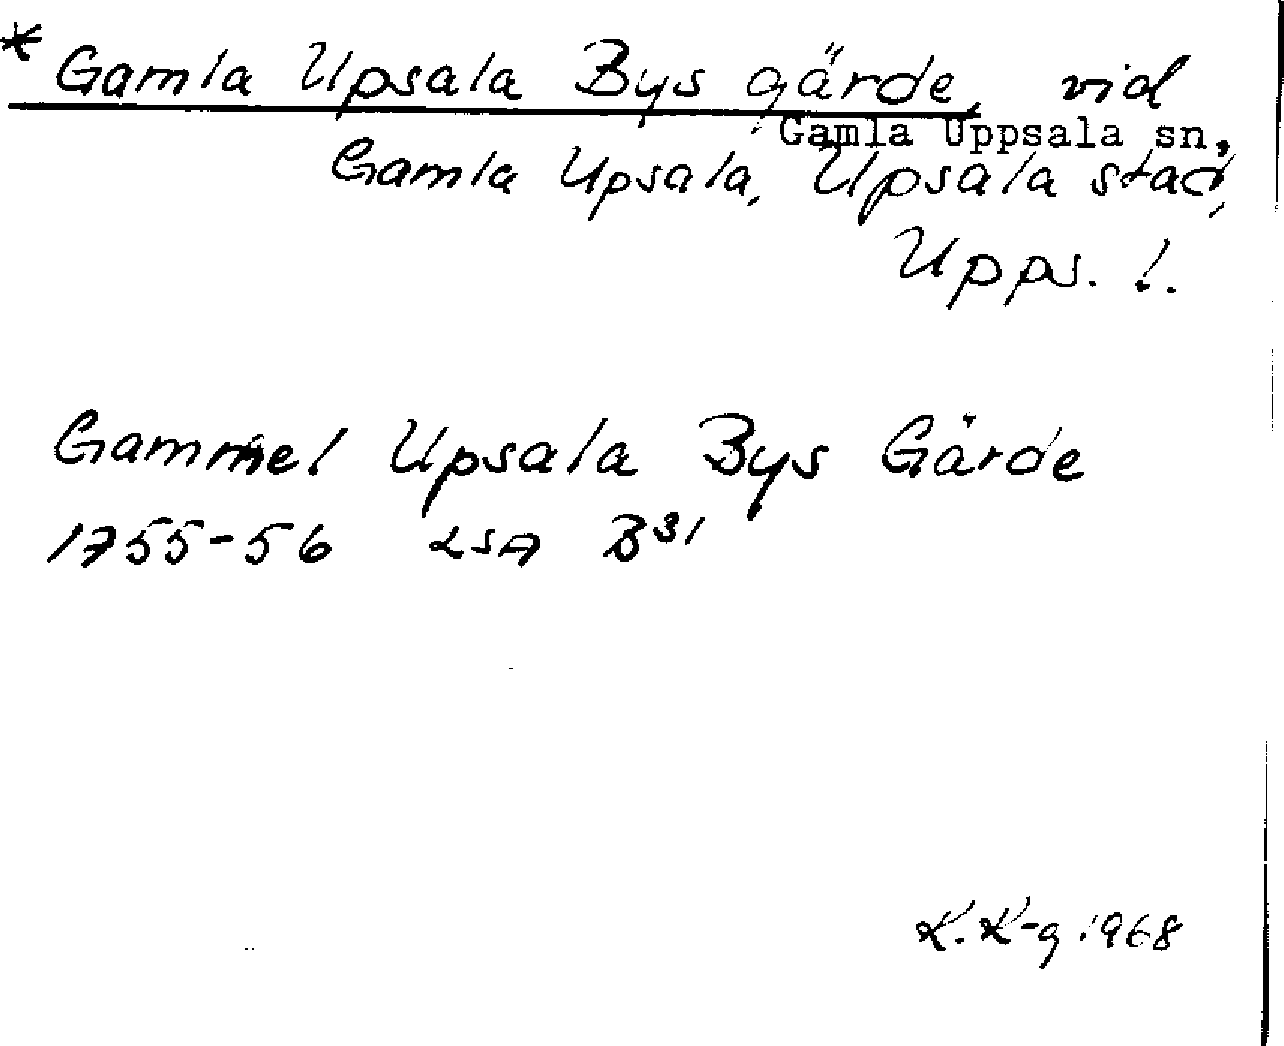 * Gamla Upsala Bys gärde, vid
Gamla Uppsala sn,
Gamla Upsala, Upsala stad,
Upps. l.
Gammel Upsala Bys Gärde
1755-56 LSA B31
K. K-g 1968